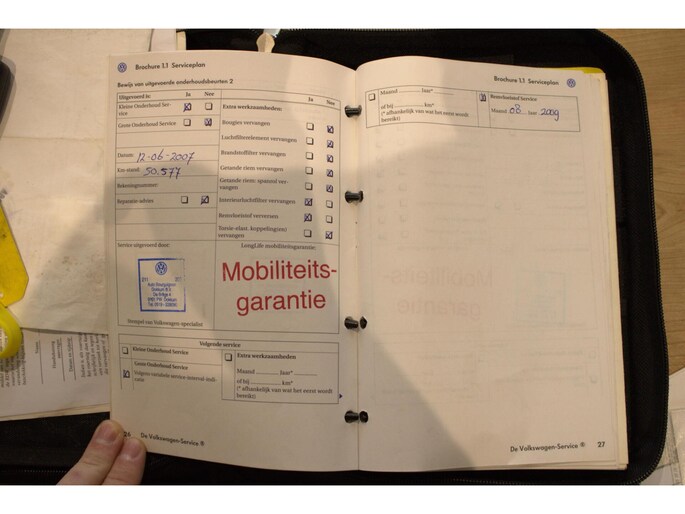 Brochure 1.1 Serviceplan
Bewijs van uitgevoerde onderhoudsbeurten 2
Uitgevoerd is: Ja Nee
Kleine Onderhoud Ser-
vice
Grote Onderhoud Service
Datum: 12-06-2007
Km-stand: 50.577
Rekeningnummer:
Reparatie-advies
Ja Nee
Extra werkzaamheden:
Bougies vervangen
Luchtfilterelement vervangen
Brandstoffilter vervangen
Getande riem vervangen
Getande riem: spanrol ver-
vangen
Interieurluchtfilter vervangen
Remvloeistof verversen
Torsie-elast. koppeling(en)
vervangen
Service uitgevoerd door:
Stempel van Volkswagen-specialist
LongLife mobiliteitsgarantie:
Mobiliteits-
garantie
Volgende service
Kleine Onderhoud Service
Grote Onderhoud Service
Volgens variabele service-interval-indi-
catie
Extra werkzaamheden
Maand Jaar*
of bij km*
(* afhankelijk van wat het eerst wordt
bereikt)
26 De Volkswagen-Service ®
Brochure 1.1 Serviceplan
Maand Jaar*
of bij km*
(* afhankelijk van wat het eerst wordt
bereikt)
Remvloeistof Service
Maand 08 Jaar 2009
De Volkswagen-Service ® 27